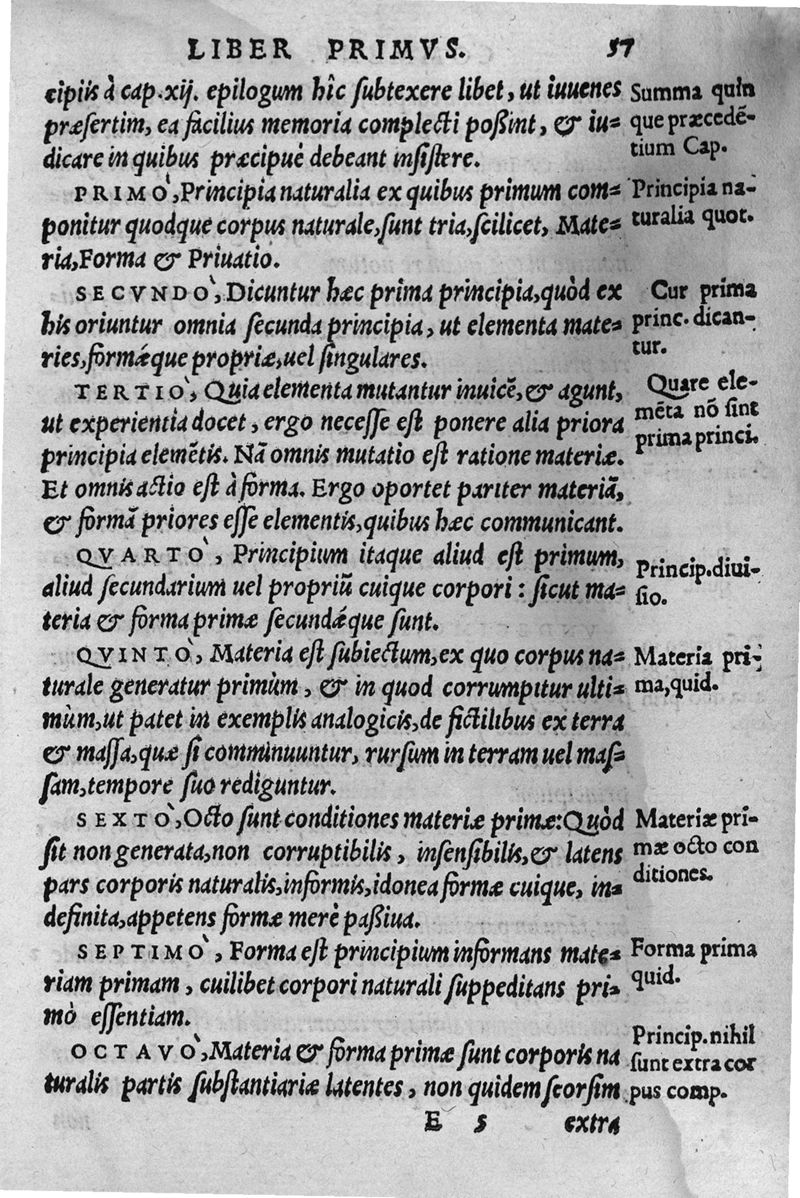 LIBER PRIMVS. 57
cipiis à cap.xij. epilogum hîc ſubtexere libet, ut iuuenes
præſertim, ea facilius memoria complecti poßint, & iu=
dicare in quibus præcipuè debeant inſiſtere.
PRIMO`, Principia naturalia ex quibus primum com=
ponitur quodque corpus naturale, ſunt tria, ſcilicet, Mate=
ria, Forma & Priuatio.
SECVNDO`, Dicuntur hæc prima principia, quòd ex
his oriuntur omnia ſecunda principia, ut elementa mate=
ries, formǽque propriæ, uel ſingulares.
TERTIO`, Quia elementa mutantur inuicẽ, & agunt,
ut experientia docet, ergo neceſſe eſt ponere alia priora
principia elemẽtis. Nã omnis mutatio eſt ratione materiæ.
Et omnis actio eſt à forma. Ergo oportet pariter materiã,
& formã priores eſſe elementis, quibus hæc communicant.
QVARTO`, Principium itaque aliud eſt primum,
aliud ſecundarium uel propriũ cuique corpori : ſicut ma=
teria & forma primæ ſecundǽque ſunt.
QVINTO`, Materia eſt ſubiectum, ex quo corpus na=
turale generatur primùm, & in quod corrumpitur ulti=
mùm, ut patet in exemplis analogicis, de fictilibus ex terra
& maſſa, quæ ſi comminuuntur, rurſum in terram uel maſ=
ſam, tempore ſuo rediguntur.
SEXTO`, Octo ſunt conditiones materiæ primæ: Quòd
ſit non generata, non corruptibilis, inſenſibilis, & latens
pars corporis naturalis, informis, idonea formæ cuique, in=
definita, appetens formæ merè paßiua.
SEPTIMO`, Forma eſt principium informans mate=
riam primam, cuilibet corpori naturali ſuppeditans pri=
mò eſſentiam.
OCTAVO`, Materia & forma primæ ſunt corporis na
turalis partis ſubſtantiariæ latentes, non quidem ſeorſim
E 5 extra
Summa quin
que præcedẽ-
tium Cap.
Principia na-
turalia quot.
Cur prima
princ. dican-
tur.
Quare ele-
mẽta nõ ſint
prima princi.
Princip. diui-
ſio.
Materia pri-
ma, quid.
Materiæ pri-
mæ octo con
ditiones.
Forma prima
quid.
Princip. nihil
ſunt extra cor
pus comp.